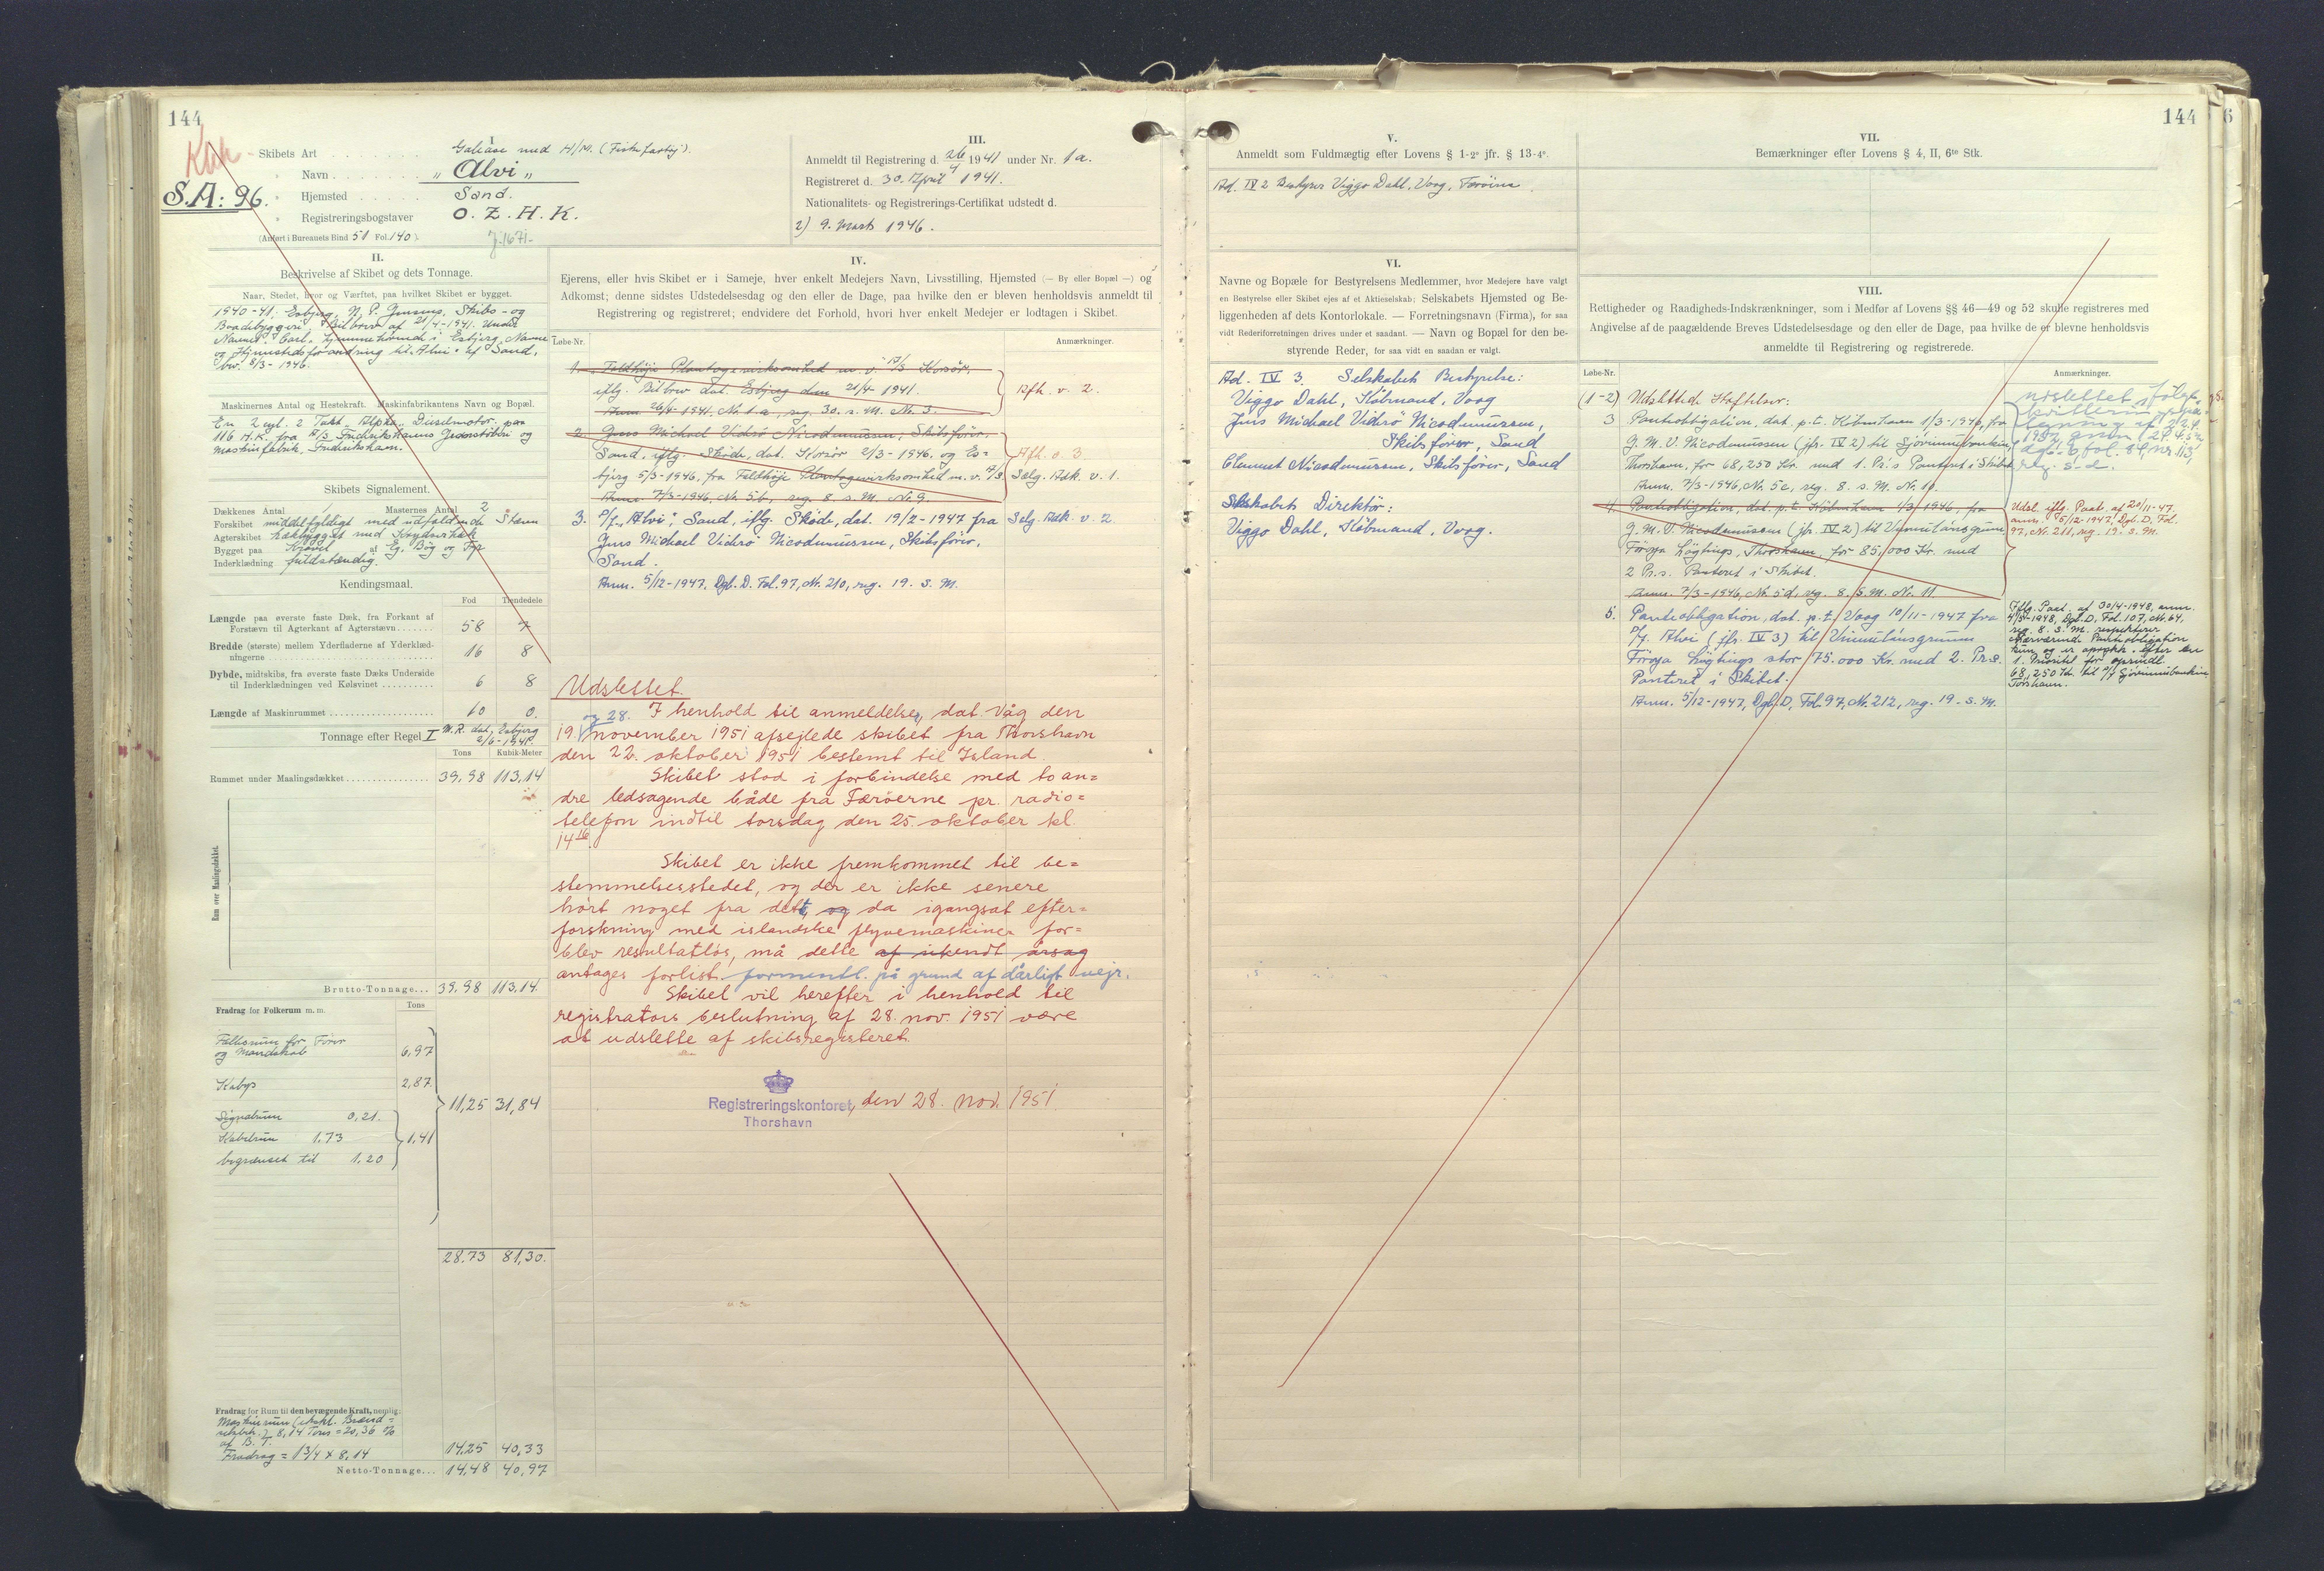 144
Klar
S.A: 96.
I
Skibets Art . . . . . . . . Galease med H/M. (Fiskefartøj).
" Navn . . . . . . . . "Alvi"
" Hjemsted . . . . . Sand.
" Registreringsbogstaver O. Z. H. K.
(Anført i Bureauets Bind 51 Fol. 140).
J. 1671.
III.
Anmeldt til Registrering d. 26/4 1941 under Nr. 1a.
Registreret d. 30. April 1941.
Nationalitets- og Registrerings-Certifikat udstedt d.
2) 9. Marts 1946.
II.
Beskrivelse af Skibet og dets Tonnage.
Naar, Stedet, hvor og Værftet, paa hvilket Skibet er bygget.
1940-41, Esbjerg, N. P. Jensens, Skibs- og
Baadebyggeri, Bilbrev af 21/4-1941. Under
Navnet "Carl", hjemmehørende i Esbjerg. Navne
og Hjemstedsforandring til "Alvi" af Sand,
bev. 8/3-1946.
Maskinernes Antal og Hestekraft. Maskinfabrikantens Navn og Bopæl.
En 2 cyl. 2 Takt "Alpha" Dieselmotor, paa
116 H.K. fra A/S Frederikshavns Jernstøberi og
Maskinfabrik, Frederikshavn.
Skibets Signalement.
Dækkenes Antal 1 Masternes Antal 2
Forskibet middelfyldigt med udfaldende Stævn
Agterskibet hækbygget med Krydserhæk
Bygget paa Kravel af Eg, Bøg og Fyr
Inderklædning fuldstændig.
Kendingsmaal.
Fod Tiendedele
Længde paa øverste faste Dæk, fra Forkant af
Forstævn til Agterkant af Agterstævn . . . . . . . 58 7
Bredde (største) mellem Yderfladerne af Yderklæd-
ningerne . . . . . . . . 16 8
Dybde, midtskibs, fra øverste faste Dæks Underside
til Inderklædningen ved Kølsvinet . . . . . . . . 6 8
Længde af Maskinrummet . . . . . . . . 10 0.
Tonnage efter Regel I M.B. dat. Esbjerg
2/6-1941.
Tons Kubik-Meter
Rummet under Maalingsdækket . . . . . . . . 39,98 113,14
Rum over Maalingsdækket.
Brutto-Tonnage... 39,98 113,14
Fradrag for Folkerum m. m. Tons
Fællesrum for Fører
og Mandskab 6,97
Kabys 2,87
Signalrum 0,21.
Kabelrum 1.73 1,41
begrænset til 1.20
11,25 31,84
28,73 81,30.
Fradrag for Rum til den bevægende Kraft, nemlig:
Maskinrum (inkl. Brænd-
selsbeh.) 8,14 Tons = 20,36 %
af B. T.
Fradrag = 1 3/4 x 8,14 14,25 40,33
Netto-Tonnage... 14,48 40,97
IV.
Ejerens, eller hvis Skibet er i Sameje, hver enkelt Medejers Navn, Livsstilling, Hjemsted (— By eller Bopæl —) og
Adkomst; denne sidstes Udstedelsesdag og den eller de Dage, paa hvilke den er bleven henholdsvis anmeldt til
Registrering og registreret; endvidere det Forhold, hvori hver enkelt Medejer er lodtagen i Skibet.
Løbe-Nr. Anmærkninger.
1. Feldhöje Plantagevirksomhed m. v. A/S Korsør,
iflg. Bilbrev dat. Esbjerg den 21/4 1941. Afh. v. 2.
Anm. 26/4-1941, Nr. 1 a, reg. 30. s. M. Nr. 3.
2. Jens Michael Viderö Nicodemussen, Skibsfører,
Sand, iflg. Skøde, dat. Korsør 2/3-1946, og Es- Afh. v. 3
bjerg 5/3-1946, fra Feldhöje Plantagevirksomhed m. v. A/S. Selg. Adk. v. 1.
Anm. 7/3-1946, Nr. 5b, reg. 8. s. M. Nr. 9.
3. P/f. "Alvi", Sand, iflg. Skøde, dat. 19/2-1947 fra Selg. Adk. v. 2.
Jens Michael Viderö Nicodemussen, Skibsfører,
Sand.
Anm. 5/12-1947, Dgb. D. Fol. 97, Nr. 210, reg. 19. s. M.
Udslettet.
og 28. I henhold til anmeldelse, dat. Våg den
19. november 1951 afsejlede skibet fra Thorshavn
den 22. oktober 1951 bestemt til Island
Skibet stod i forbindelse med to an=
dre ledsagende både fra Færøerne pr. radio=
telefon indtil torsdag den 25. oktober kl.
14 16.
Skibet er ikke fremkommet til be=
stemmelsesstedet, og der er ikke senere
hørt noget fra dett, og da igangsat efter=
forskning med islandske flyvemaskiner for=
blev resultatløs, må dette af ukendt årsag
antages forlist formentl. på grund af dårligt vejr.
Skibet vil herefter i henhold til
registrators beslutning af 28. nov. 1951 være
at udslette af skibsregisteret.
Registreringskontoret, den 28. nov. 1951
Thorshavn
144
6
V.
Anmeldt som Fuldmægtig efter Lovens § 1-2° jfr. § 13-4°.
Ad. IV 2 Bestyrer Viggo Dahl, Vaag, Færöerne.
VI.
Navne og Bopæle for Bestyrelsens Medlemmer, hvor Medejere have valgt
en Bestyrelse eller Skibet ejes af et Aktieselskab; Selskabets Hjemsted og Be-
liggenheden af dets Kontorlokale. — Forretningsnavn (Firma), for saa
vidt Rederiforretningen drives under et saadant. — Navn og Bopæl for den be-
styrende Reder, for saa vidt en saadan er valgt.
Ad. IV 3. Selskabets Bestyrelse:
Viggo Dahl, Købmand, Vaag
Jens Michael Viderö Nicodemussen,
Skibsfører, Sand
Clement Nicodemussen, Skibsfører, Sand
Selskabets Direktør:
Viggo Dahl, Købmand, Vaag.
VII.
Bemærkninger efter Lovens § 4, II, 6te Stk.
VIII.
Rettigheder og Raadigheds-Indskrænkninger, som i Medfør af Lovens §§ 46—49 og 52 skulle registreres med
Angivelse af de paagældende Breves Udstedelsesdage og den eller de Dage, paa hvilke de er blevne henholdsvis
anmeldte til Registrering og registrerede.
Løbe-Nr. Anmærkninger.
(1-2) Udslettede Hæftelser.
3 Pantobligation, dat. p.t. København 1/3-1946, fra
J. M. V. Nicodemussen (jfr. IV 2) til Sjovinnubankin,
Thorshavn, for 68,250 Kr. med 1. Pr.s Panteret i Skibet
Anm. 7/3-1946, Nr. 5c, reg. 8. s. M. Nr. 10.
udslettet ifølge
kvittering
1952,
dgb. 6 fol. 81, nr. 113,
reg. s. d.
4. Pantobligation, dat. p.t. København 1/3 1946, fra
J. M. V. Nicodemussen (jfr. IV 2) til Vinnulánsgrunn
Føroya Løgtings, Thorshavn, for 85,000 Kr. med
2 Pr.s. Panteret i Skibet.
Anm. 7/3-1946, Nr. 5 d, reg. 8. s. M. Nr. 11.
Udsl. iflg. Paat. af 20/11-47.
anm. 5/12-1947, Dgb. D. Fol.
97, Nr. 211, reg. 19. s. M.
5. Pantobligation, dat. p.t. Vaag 10/11-1947 fra
P/f. Alvi (jfr. IV 3) til Vinnulánsgrunn
Føroya Løgtings stor 75.000 Kr. med 2. Pr.s.
Panteret i Skibet.
Anm. 5/12-1947, Dgb. D, Fol. 97, Nr. 212, reg. 19. s. M.
Iflg. Paat. af 30/4-1948, anm.
4/5-1948, Dgb. D. Fol. 107, Nr. 64,
reg. 8. s. M. respekterer
nærværende Pantobligation
kun og er oprykk. efter en
1. Prioritet for oprindl.
68,250 Kr. til P/f Sjóvinnubankin
Tórshavn.